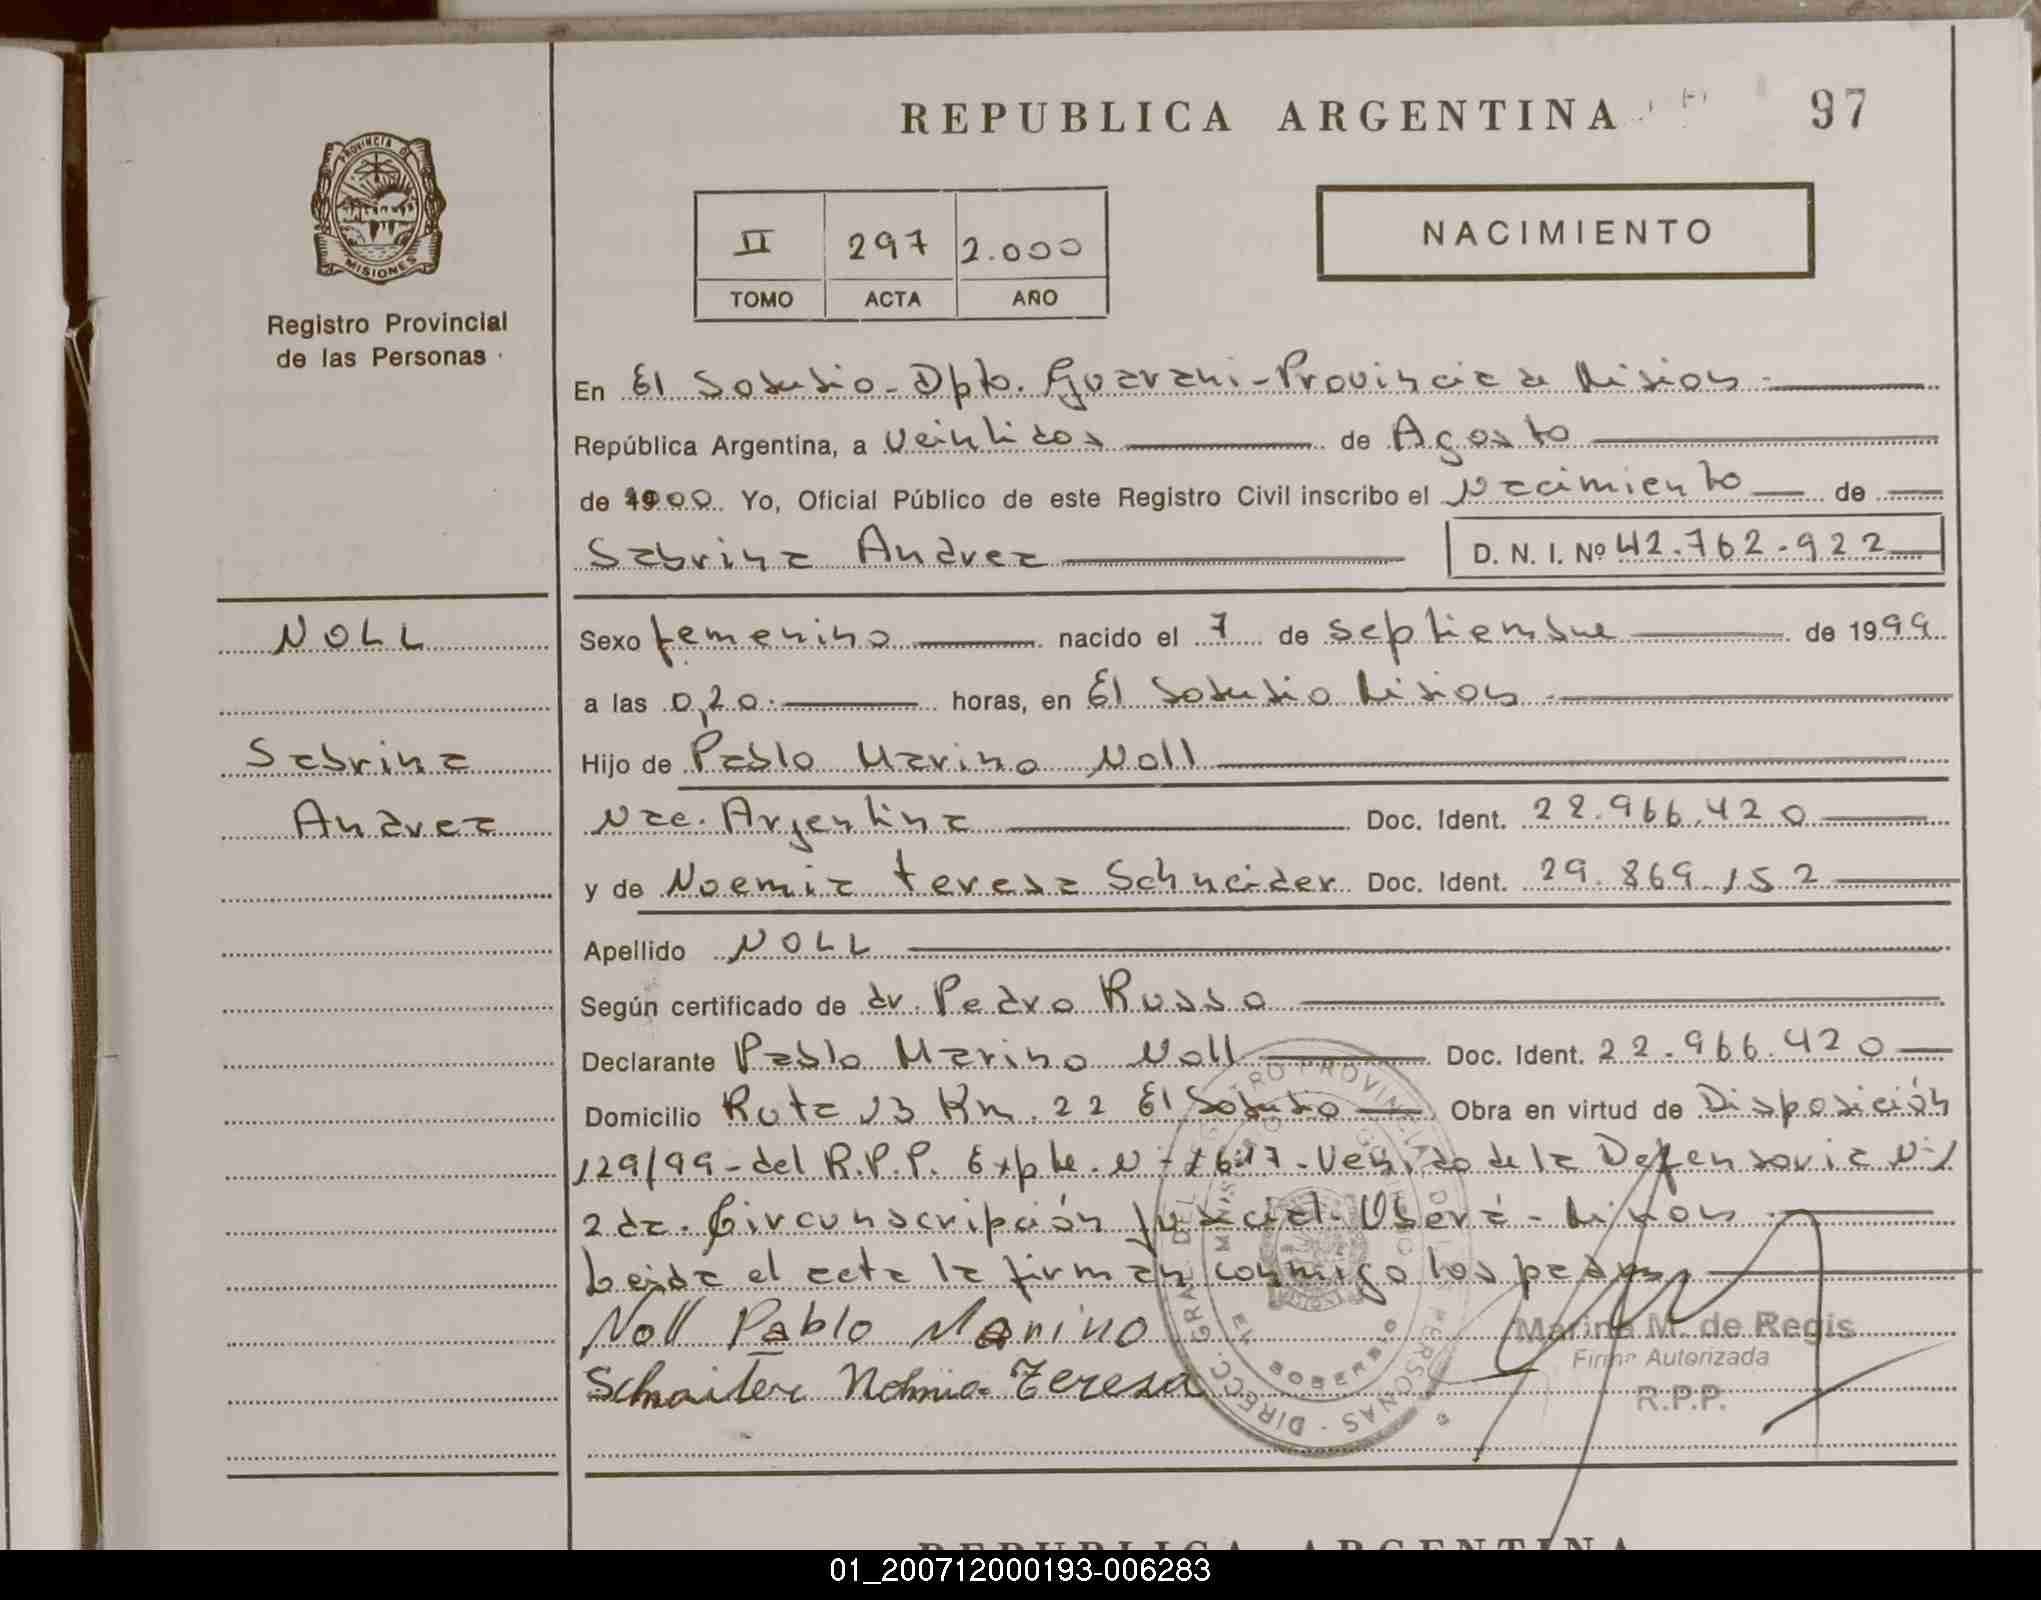 REPUBLICA ARGENTINA
97
PROVINCIA DE
MISIONES
Registro Provincial
de las Personas
II 297 2.000
TOMO ACTA AÑO
NACIMIENTO
En El Soberbio - Dpto. Guarani - Provincia de Misiones
República Argentina, a Veintidos de Agosto
de Yo, Oficial Público de este Registro Civil inscribo el Nacimiento de
Sabrina Andrea D. N. I. Nº 42.762.922
NOLL
Sabrina
Andrea
Sexo femenino nacido el 7 de septiembre de 1999
a las 0,20 horas, en El Soberbio Misiones
Hijo de Pablo Marino Noll
Nac. Argentina Doc. Ident. 22.966.420
y de Noemia teresa Schneider Doc. Ident. 29.869.152
Apellido NOLL
Según certificado de dr. Pedro Russo
Declarante Pablo Marino Noll Doc. Ident. 22.966.420
Domicilio Ruta 13 Km. 22 El Soberbio Obra en virtud de Disposición
129/99 - del R.P.P. Expte. N- - Venido de la Defensoria
2da. Circunscripción Judicial - Oberá - Misiones
Leida el acta la firman conmigo los padres
Noll Pablo Marino
Teresa
Marina M. de Regis
Firma Autorizada
R.P.P.
EL SOBERBIO
REPUBLICA ARGENTINA
01_200712000193-006283